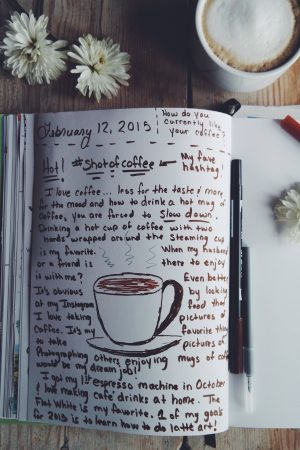 How do you
currently like
your coffee?
February 12, 2015
Hot! #Shotofcoffee ← My fave
hashtag!
I love coffee... less for the taste & more
for the mood and how to drink a hot mug of
coffee, you are forced to slow down.
Drinking a hot cup of coffee with two
hands wrapped around the steaming cup
is my favorite. When my husband
or a friend is there to enjoy
it with me? Even better
It's obvious by looking
at my Instagram feed that
I love taking pictures of
Coffee. It's my favorite thing
to take pictures of
Photographing others enjoying mugs of coffee
would be my dream job!
I got my 1st espresso machine in October
& love making cafe drinks at home. The
Flat White is my favorite. 1 of my goals
for 2015 is to learn how to do latte art!